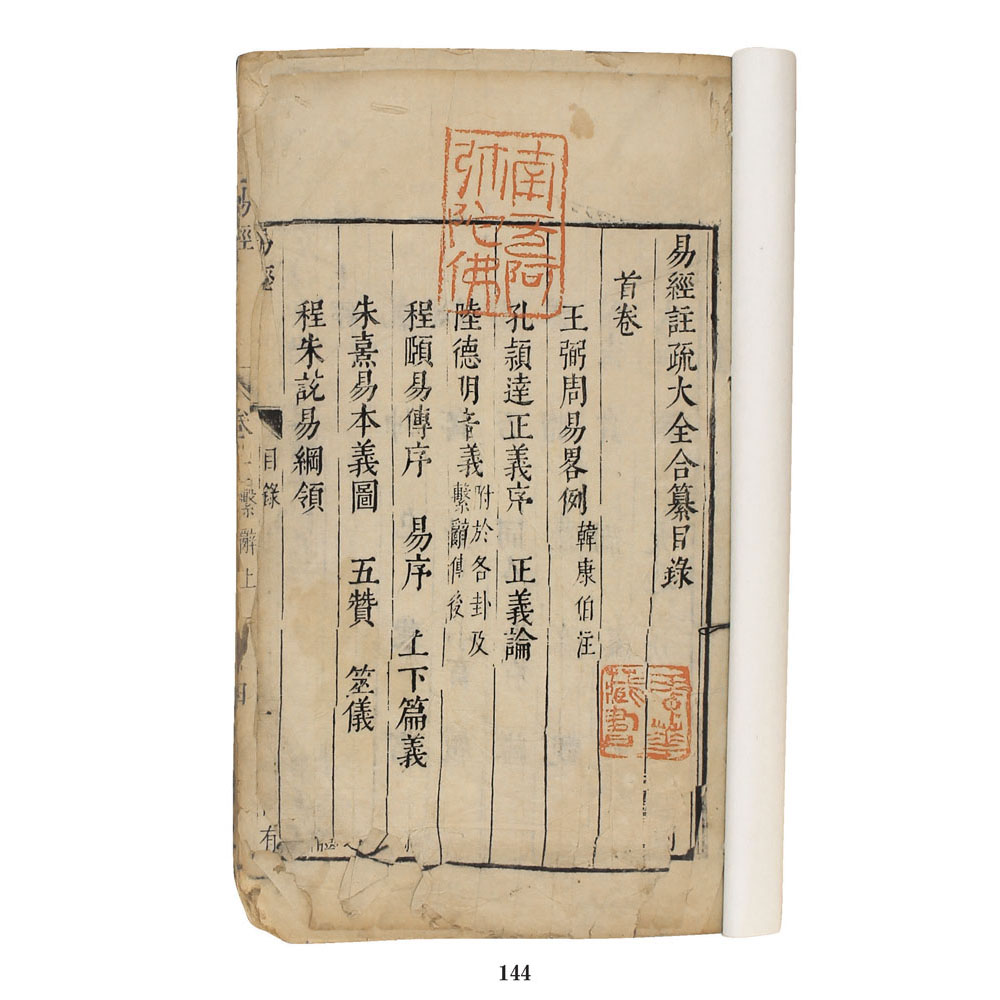 易經註疏大全合纂目錄
首卷
王弼周易畧例 韓康伯注
孔頴達正義序 正義論
陸德明音義 附於各卦及
繫辭傳後
程頤易傳序 易序 上下篇義
朱熹易本義圖 五贊 筮儀
程朱説易綱領
易經
目錄
有
易經
繫辭上
南无阿
弥陀佛
藏書
144